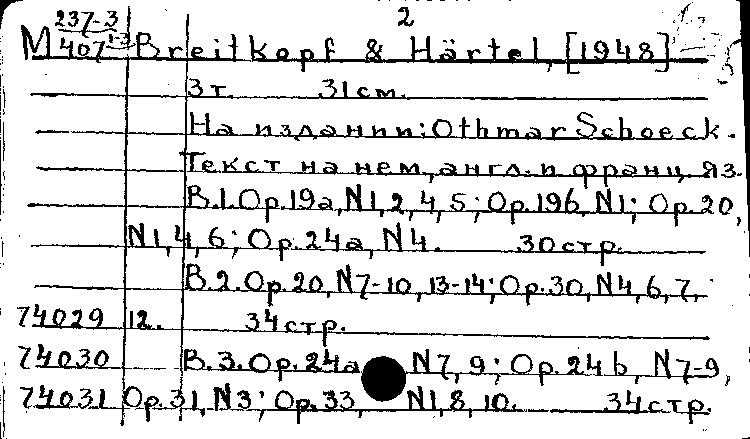 2
М 237-3
407 Breitkopf & Härtel, [1948]
3 т. 31 см.
На издании: Othmar Schoeck.
Текст на нем., англ. и франц. яз.
B.1. Op.19a, N1, 2, 4, 5; Op.19б, N1; Op.20,
N1, 4, 6; Op.24a, N4. 30 стр.
B.2. Op.20, N7-10, 13-14; Op.30, N4, 6, 7,
74029 12. 34 стр.
74030 B.3. Op.24a N7, 9; Op.24b, N7-9,
74031 Op.31, N3; Op.33, N1, 8, 10. 34 стр.